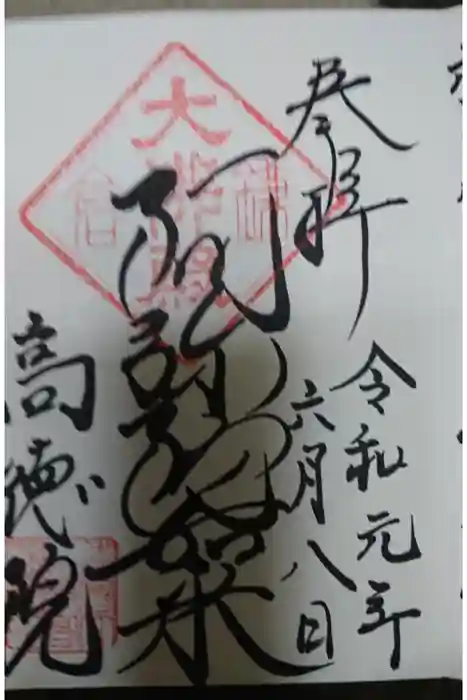 奉拝
令和元年
六月八日
大悲殿
阿弥陀如来
高徳院